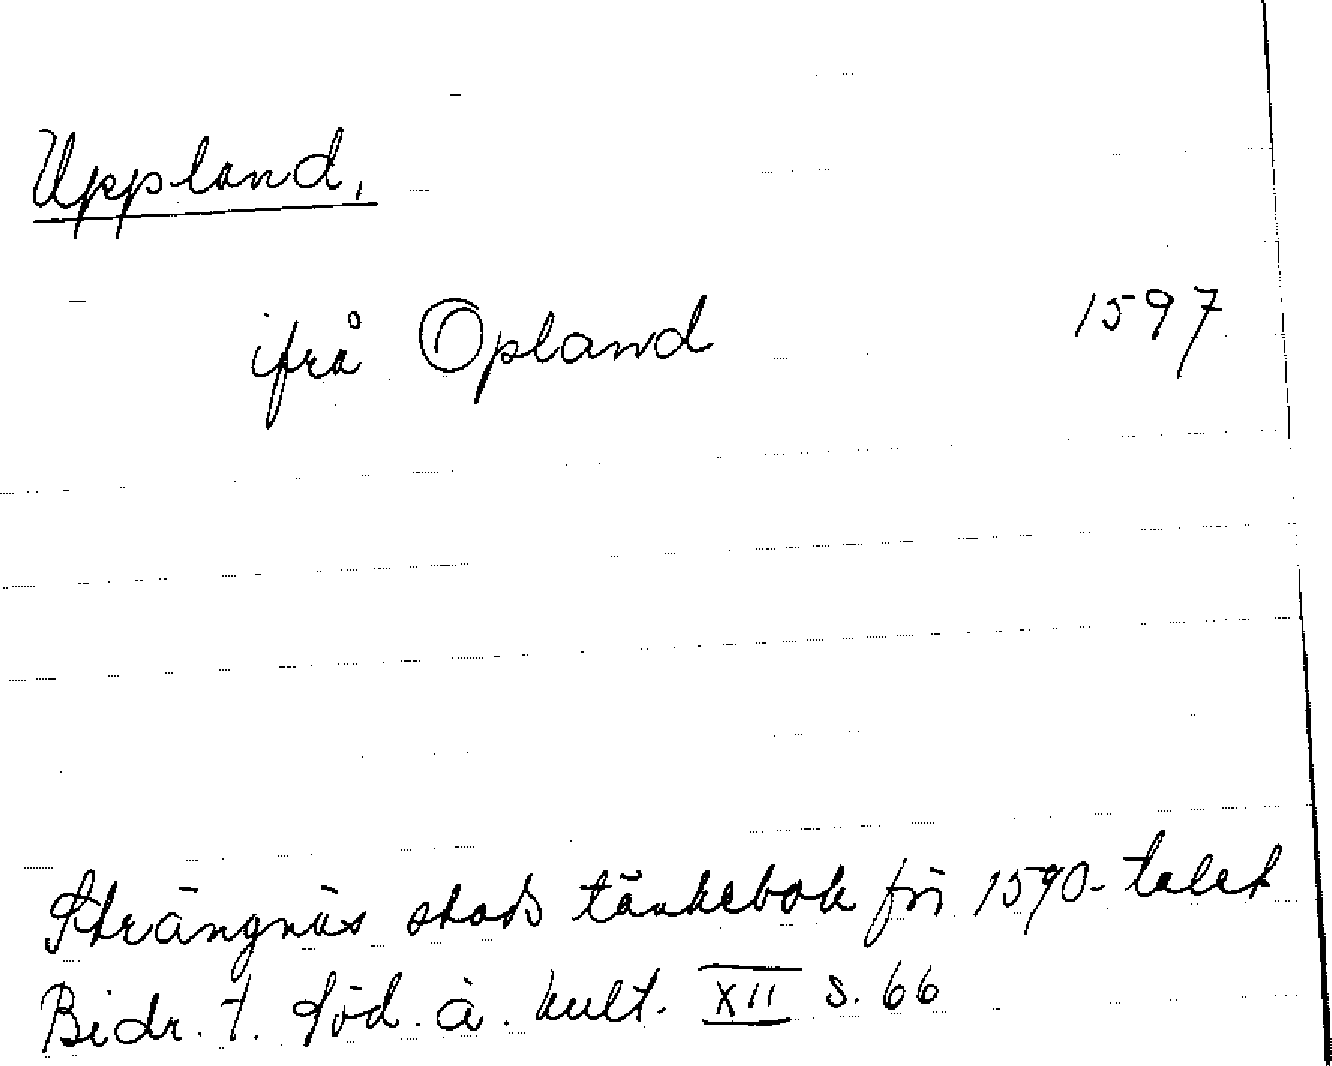 Uppland,
ifrå Opland 1597.
Strängnäs stads tänkebok för 1590-talet
Bidr. t. Söd. ä. kult. XII s. 66